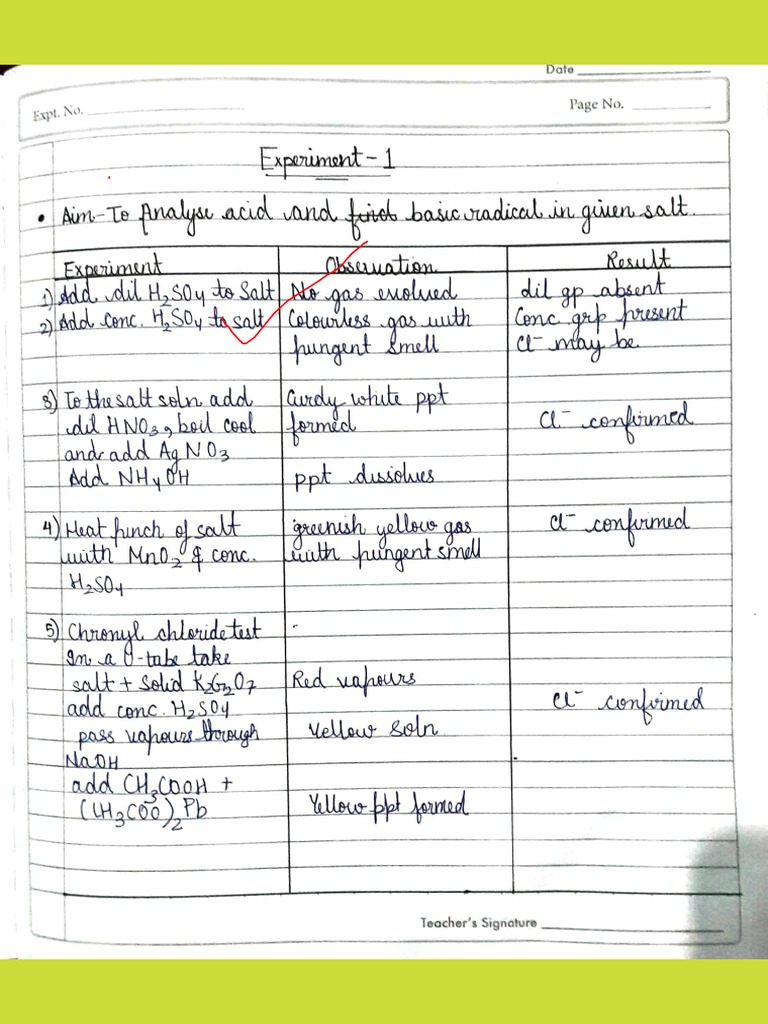 Date
Expt. No.
Page No.
Experiment - 1
• Aim - To Analyse acid and find basic radical in given salt.
Experiment Observation Result
1) Add dil H2SO4 to Salt No gas evolved dil gp absent
2) Add conc. H2SO4 to salt Colourless gas with Conc. grp present
pungent smell Cl- may be
3) To the salt soln add Curdy white ppt
dil HNO3, boil cool formed Cl- confirmed
and add AgNO3
Add NH4OH ppt dissolves
4) Heat pinch of salt greenish yellow gas Cl- confirmed
with MnO2 & conc. with pungent smell
H2SO4
5) Chromyl chloride test
In a U-tube take
salt + Solid K2Cr2O7 Red vapours
add conc. H2SO4 Cl- confirmed
pass vapours through Yellow soln
NaOH
add CH3COOH +
(CH3COO)2Pb Yellow ppt formed
Teacher's Signature